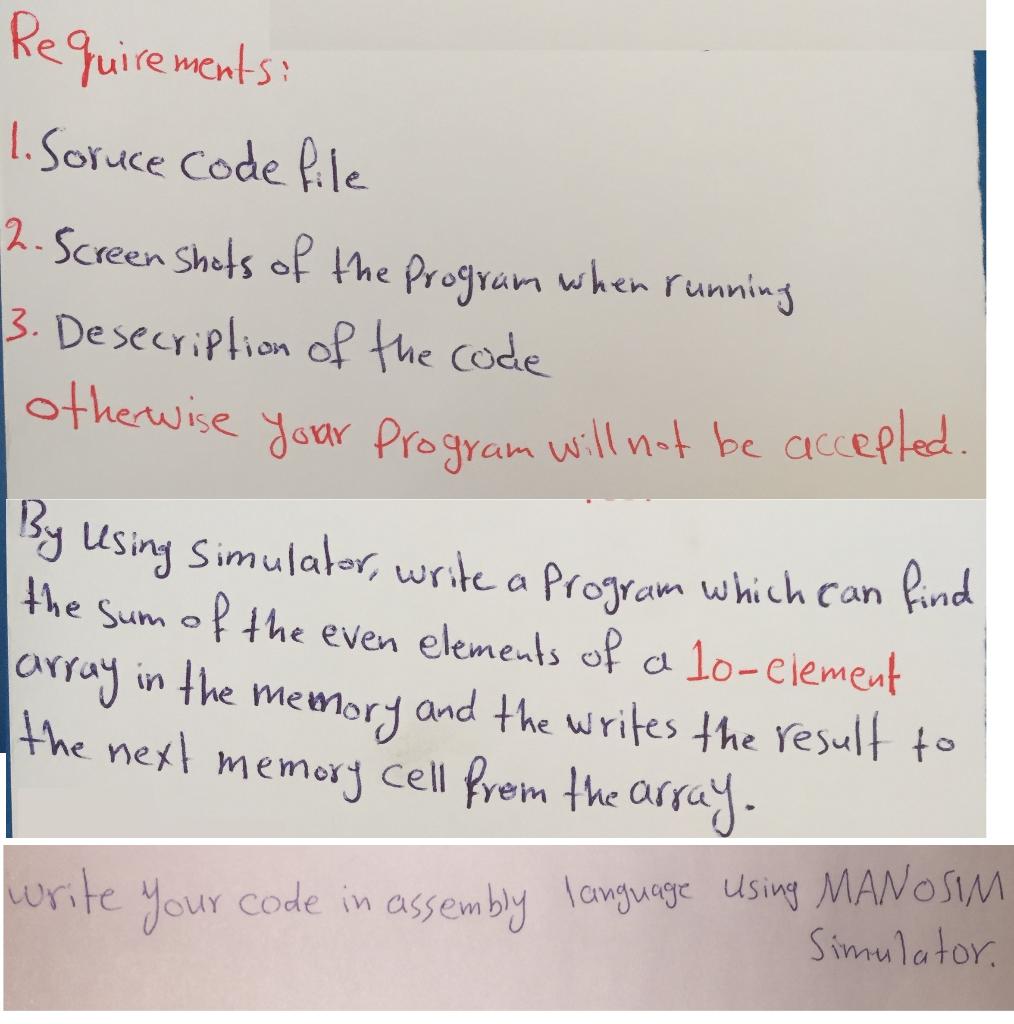 Requirements:
1. Soruce code file
2. Screen shots of the Program when running
3. Desecription of the code
otherwise your Program will not be accepted.
By Using Simulator, write a Program which can find
the sum of the even elements of a 10-element
array in the memory and the writes the result to
the next memory cell from the array.
write your code in assembly language using MANOSIM
Simulator.